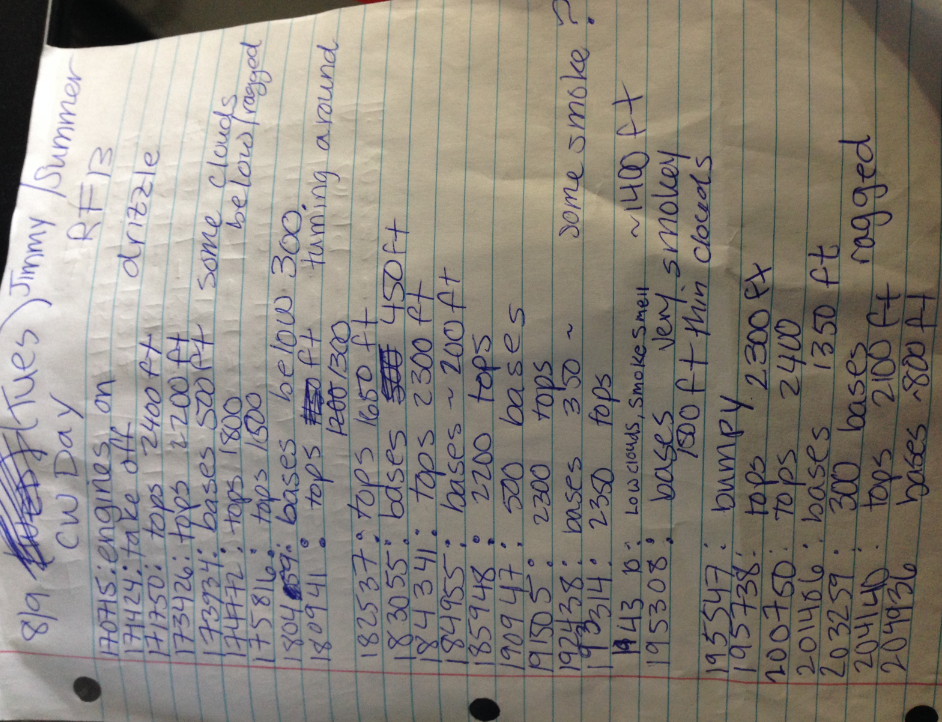 8/9 (Tues) Jimmy/Summer
CW Day RF13
170715: engines on
171424: take off drizzle
171750: tops 2400 ft
173426: tops 2200 ft
173934: bases 500 ft some clouds
174772: tops 1800 below/ragged
175816: tops 1500
1804 : bases below 300.
180941: tops ft turning around
1300
182537: tops 1650 ft
183055: bases 450 ft
184341: tops 2300 ft
184955: bases ~200 ft
185948: 2200 tops
190947: 500 bases
191505: 2300 tops
192438: bases 350 ~ some smoke?
193314: 2350 tops
1943 : Low clouds, smoke smell ~1400 ft
195308: bases very smokey
1500 ft thin clouds
195547: bumpy
195738: tops 2300 ft
200750: tops 2400
201416: bases 1350 ft
203259: 300 bases ragged
204140: tops 2100 ft
204936 bases ~800 ft